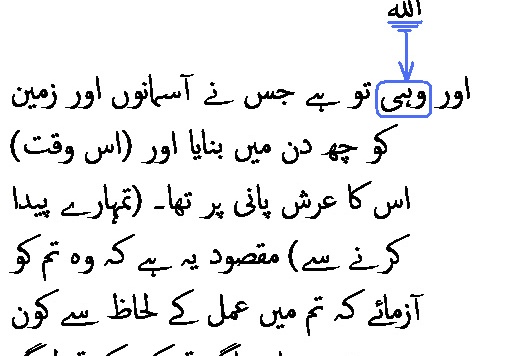 الله
اور وہی تو ہے جس نے آسمانوں اور زمین
کو چھ دن میں بنایا اور (اس وقت)
اس کا عرش پانی پر تھا۔ (تمہارے پیدا
کرنے سے) مقصود یہ ہے کہ وہ تم کو
آزمائے کہ تم میں عمل کے لحاظ سے کون